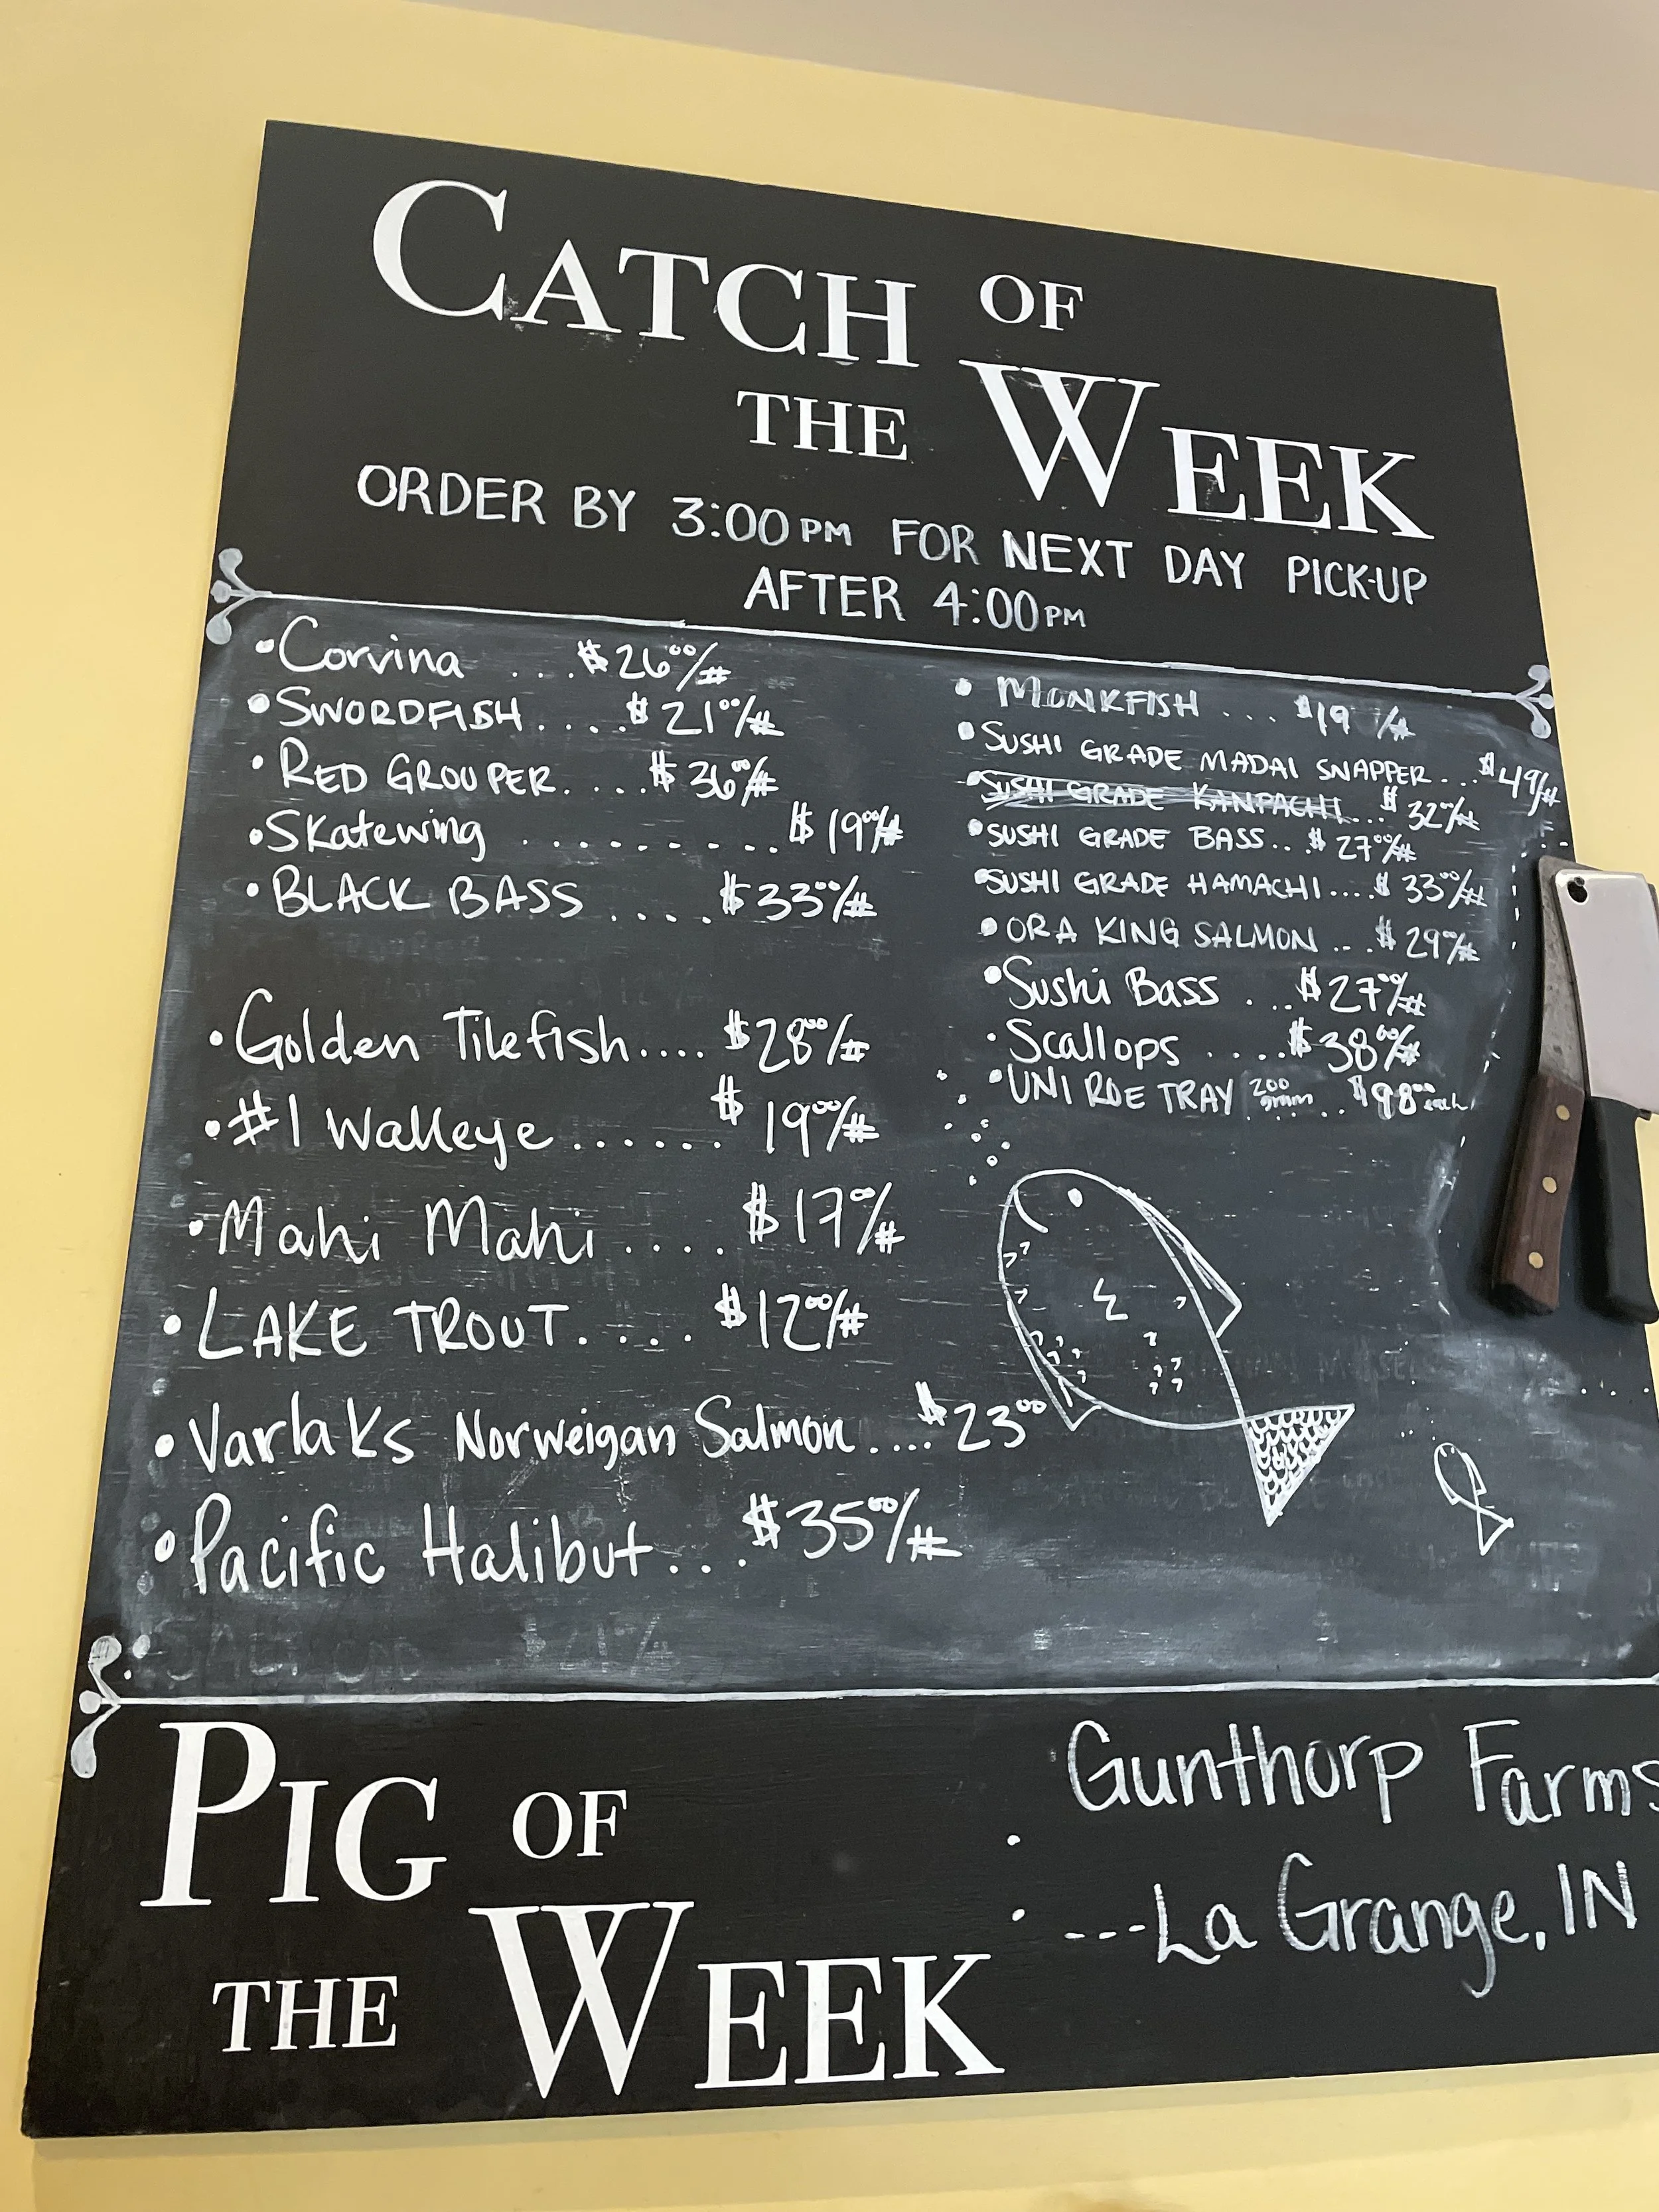 CATCH OF
THE WEEK
ORDER BY 3:00PM FOR NEXT DAY PICK-UP
AFTER 4:00PM
•Corvina ...$26⁰⁰/#
•SWORDFISH....$21⁰⁰/#
•RED GROUPER.....$36⁰⁰/#
•Skatewing ..........$19⁰⁰/#
•BLACK BASS ....$33⁰⁰/#
•Golden Tilefish....$28⁰⁰/#
•#1 Walleye......$19⁰⁰/#
•Mahi Mahi....$17⁰⁰/#
•LAKE TROUT....$12⁰⁰/#
•Varlaks Norweigan Salmon....$23⁰⁰
•Pacific Halibut...$35⁰⁰/#
•MONKFISH ...$19 /#
•SUSHI GRADE MADAI SNAPPER...$49/#
•SUSHI GRADE KANPACHI...$32⁰⁰/#
•SUSHI GRADE BASS...$27⁰⁰/#
•SUSHI GRADE HAMACHI....$33⁰⁰/#
•ORA KING SALMON ...$29⁰⁰/#
•Sushi Bass ...$27⁰⁰/#
•Scallops ....$38⁰⁰/#
•UNI ROE TRAY 200 gram .....$98⁰⁰ each
PIG OF
THE WEEK
• Gunthorp Farms
• ---La Grange, IN